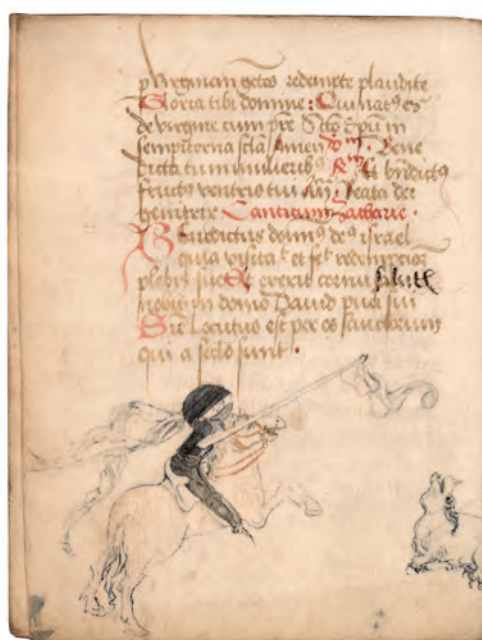 p virginem gentes redempte plaudite
Gloria tibi domine: Qui natꝰ es
de virgine cum p̄re Sc̄to sp̄u in
sempiterna sc̄la Amen Bene
dicta tu in mulieribꝰ Et bn̄dictꝰ
fructꝰ ventris tui Añ. Beata dei
genitrix Canticum Zacharie.
Benedictus domiꝰ deꝰ israel
quia visitaᵗ et feᵗ redempcioꝫ
plebis sue Et erexit cornu saluti
nobis in domo David pueri sui
Sic Locutus est per os sanctorum
qui a sc̄lo sunt.